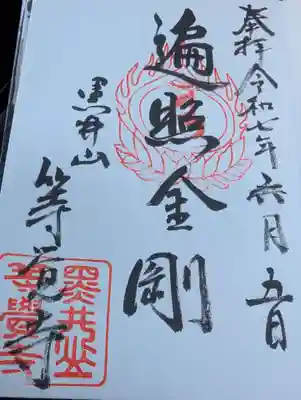 奉拝 令和七年 六月 五日
遍照金剛
黒井山
等覚寺
黒井山
等覺寺